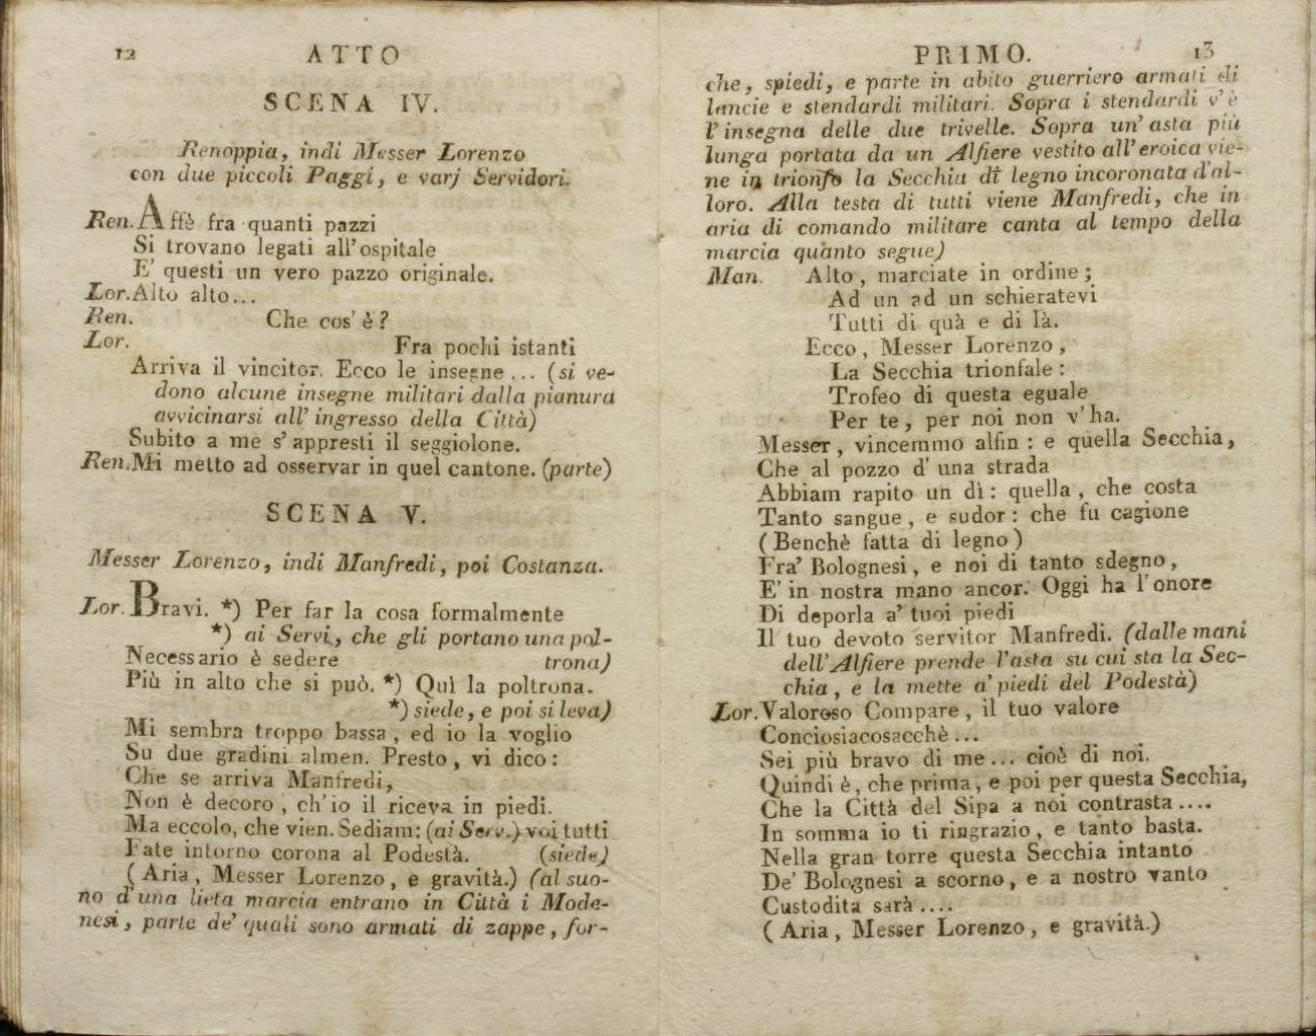 12 ATTO
SCENA IV.
Renoppia, indi Messer Lorenzo
con due piccoli Paggi, e varj Servidori.
Ren. Affè fra quanti pazzi
Si trovano legati all'ospitale
E' questi un vero pazzo originale.
Lor. Alto alto...
Ren. Che cos' è?
Lor. Fra pochi istanti
Arriva il vincitor. Ecco le insegne... (si ve-
dono alcune insegne militari dalla pianura
avvicinarsi all' ingresso della Città)
Subito a me s' appresti il seggiolone.
Ren. Mi metto ad osservar in quel cantone. (parte)
SCENA V.
Messer Lorenzo, indi Manfredi, poi Costanza.
Lor. Bravi. *) Per far la cosa formalmente
*) ai Servi, che gli portano una pol-
Necessario è sedere trona)
Più in alto che si può. *) Quì la poltrona.
*) siede, e poi si leva)
Mi sembra troppo bassa, ed io la voglio
Su due gradini almen. Presto, vi dico:
Che se arriva Manfredi,
Non è decoro, ch'io il riceva in piedi.
Ma eccolo, che vien. Sediam: (ai Serv.) voi tutti
Fate intorno corona al Podestà. (siede)
(Aria, Messer Lorenzo, e gravità.) (al suo-
no d'una lieta marcia entrano in Città i Mode-
nesi, parte de' quali sono armati di zappe, for-
PRIMO. 13
che, spiedi, e parte in abito guerriero armati di
lancie e stendardi militari. Sopra i stendardi v'è
l'insegna delle due trivelle. Sopra un' asta più
lunga portata da un Alfiere vestito all' eroica vie-
ne in trionfo la Secchia di legno incoronata d'al-
loro. Alla testa di tutti viene Manfredi, che in
aria di comando militare canta al tempo della
marcia quanto segue)
Man. Alto, marciate in ordine;
Ad un ad un schieratevi
Tutti di quà e di là.
Ecco, Messer Lorenzo,
La Secchia trionfale:
Trofeo di questa eguale
Per te, per noi non v' ha.
Messer, vincemmo alfin: e quella Secchia,
Che al pozzo d' una strada
Abbiam rapito un dì: quella, che costa
Tanto sangue, e sudor: che fu cagione
(Benchè fatta di legno)
Fra' Bolognesi, e noi di tanto sdegno,
E' in nostra mano ancor. Oggi ha l'onore
Di deporla a' tuoi piedi
Il tuo devoto servitor Manfredi. (dalle mani
dell' Alfiere prende l'asta su cui sta la Sec-
chia, e la mette a' piedi del Podestà)
Lor. Valoroso Compare, il tuo valore
Conciosiacosacchè...
Sei più bravo di me... cioè di noi.
Quindi è, che prima, e poi per questa Secchia,
Che la Città del Sipa a noi contrasta....
In somma io ti ringrazio, e tanto basta.
Nella gran torre questa Secchia intanto
De' Bolognesi a scorno, e a nostro vanto
Custodita sarà....
(Aria, Messer Lorenzo, e gravità.)